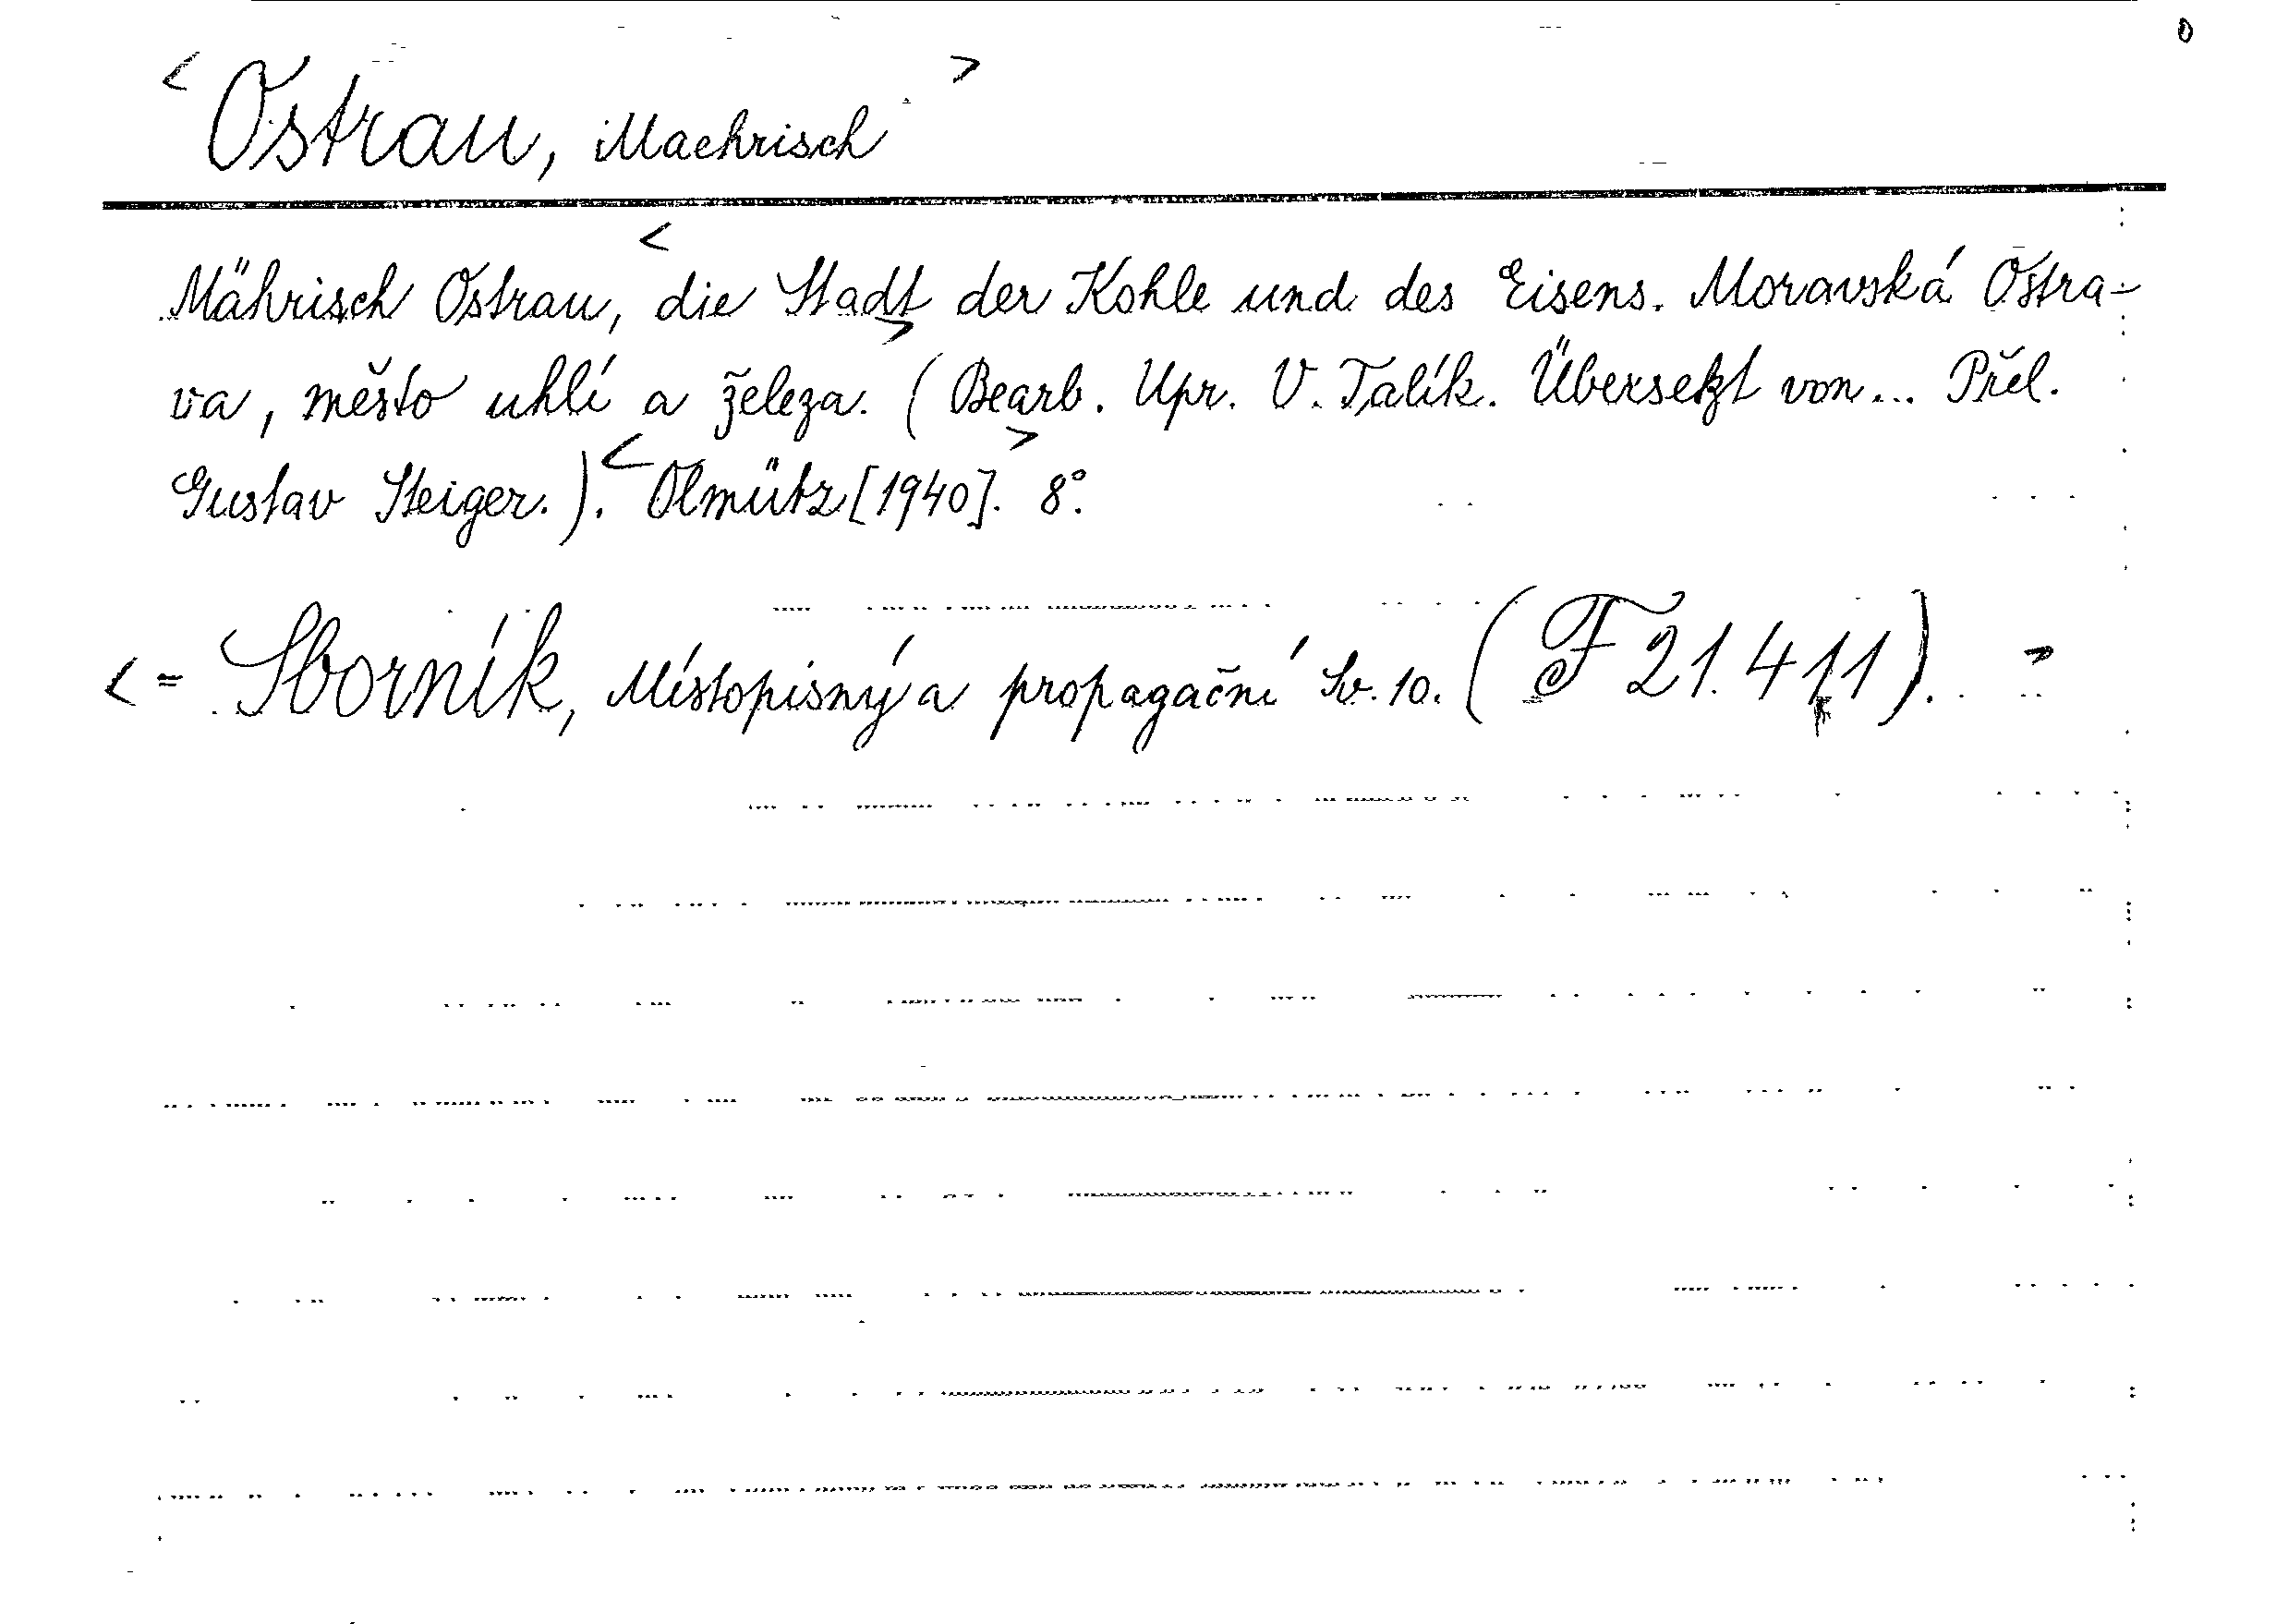 < Ostrau, Maehrisch >
Mährisch Ostrau, < die Stadt > der Kohle und des Eisens. Moravská Ostra-
va, město uhlí a železa. (Bearb. Upr. V. Talík. Übersetzt von... Přel.
Gustav Steiger.). < Olmütz [1940]. > 8°.
< = Sborník, Místopisný a propagační Sv. 10. (F 21.411). >